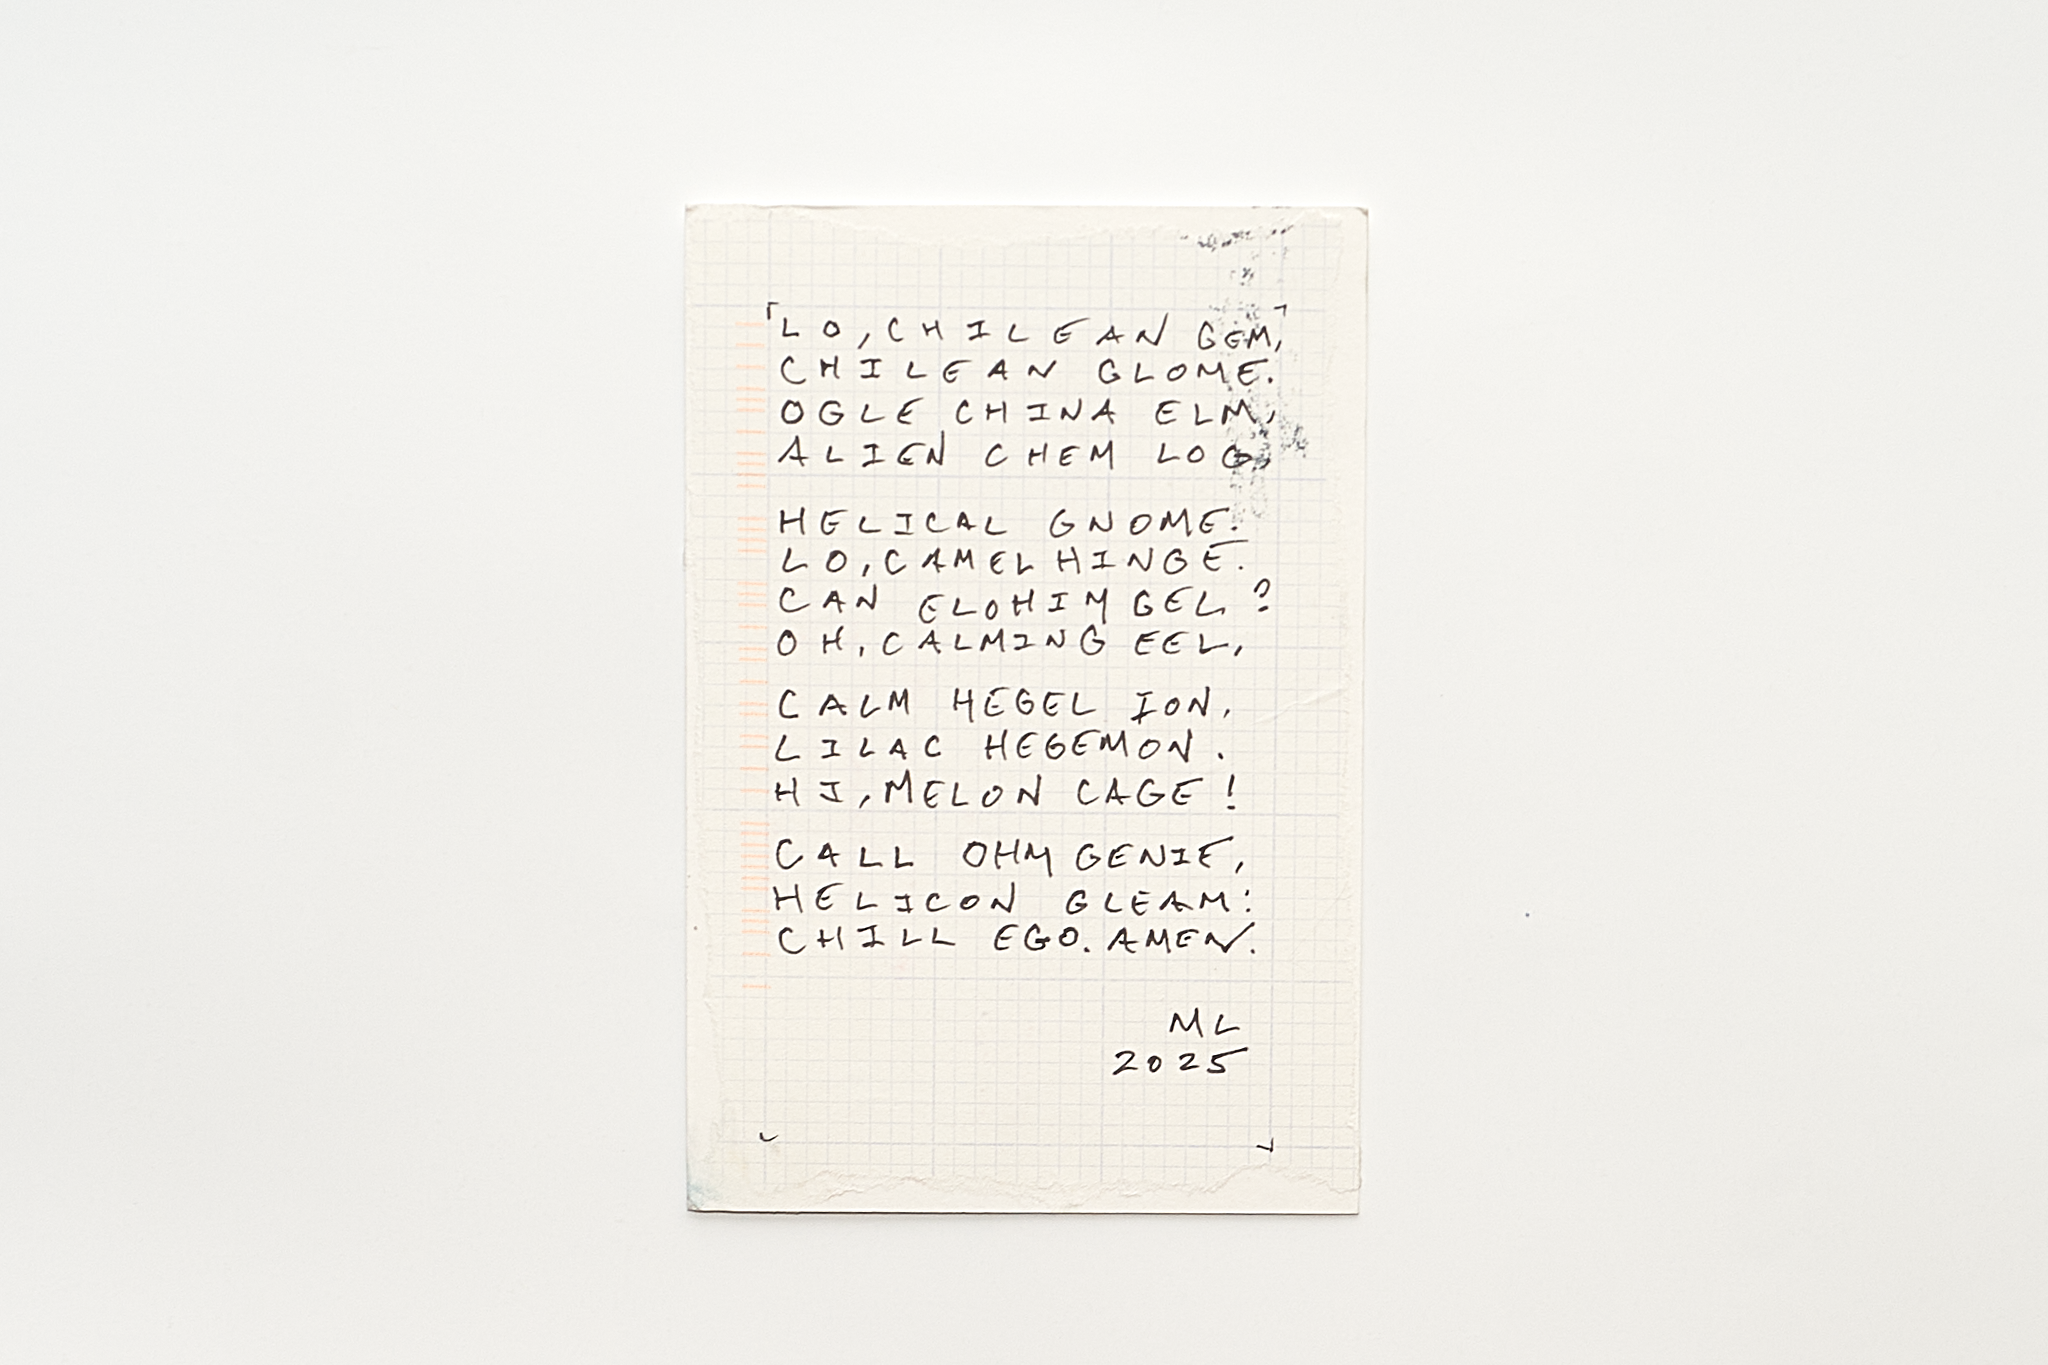 LO, CHILEAN GEM,
CHILEAN GLOME.
OGLE CHINA ELM,
ALIEN CHEM LOG,
HELICAL GNOME.
LO, CAMEL HINGE.
CAN ELOHIM GEL?
OH, CALMING EEL,
CALM HEGEL ION,
LILAC HEGEMON.
HI, MELON CAGE!
CALL OHM GENIE,
HELICON GLEAM:
CHILL EGO. AMEN.
ML
2025